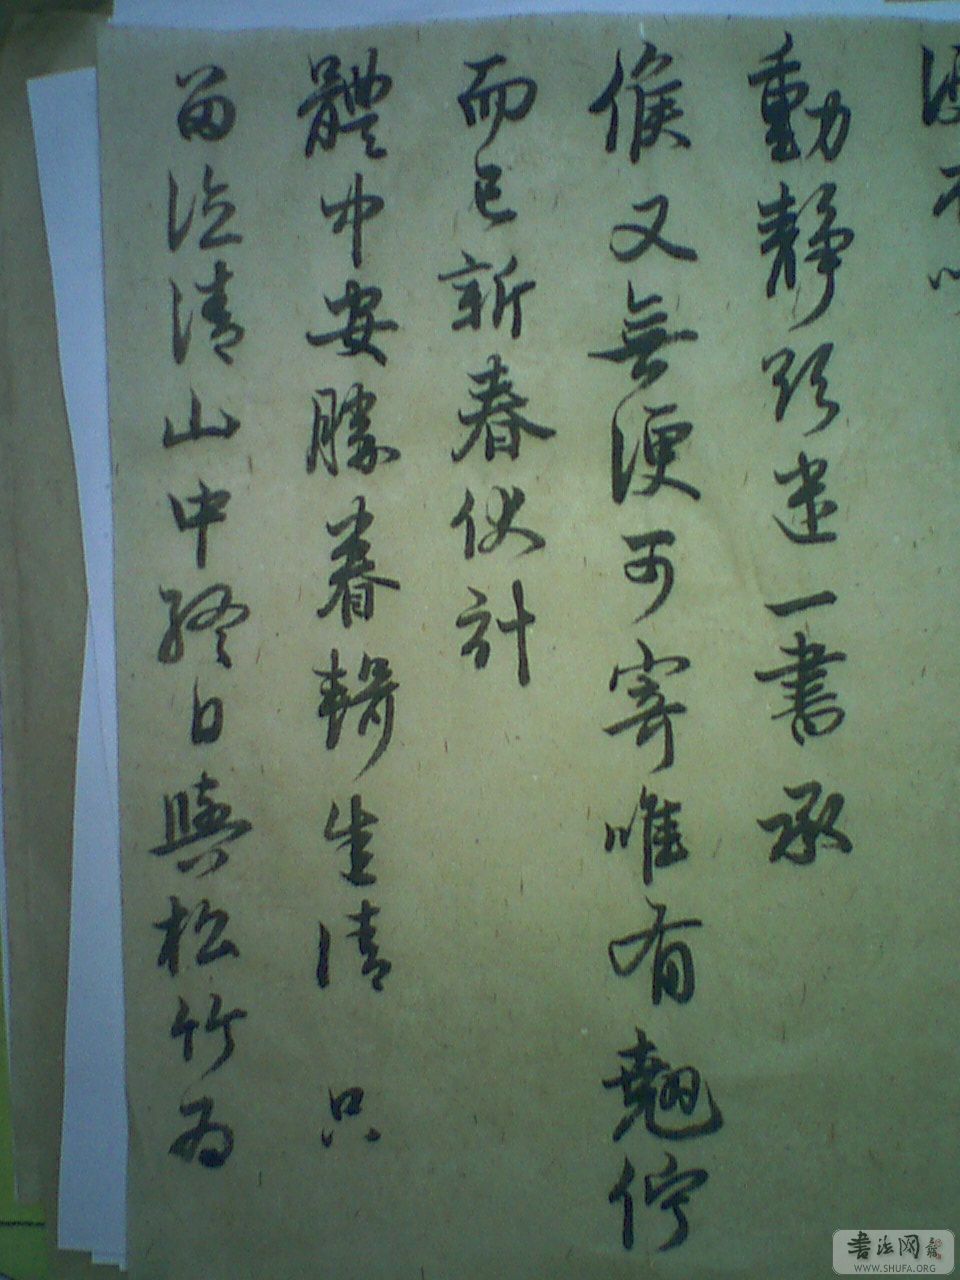 動靜欲遣一書承
候又無便可寄唯有翹佇
而已新春伏計
體中安勝眷輯生清只
留滄清山中終日與松竹為
書法网
WWW.SHUFA.ORG